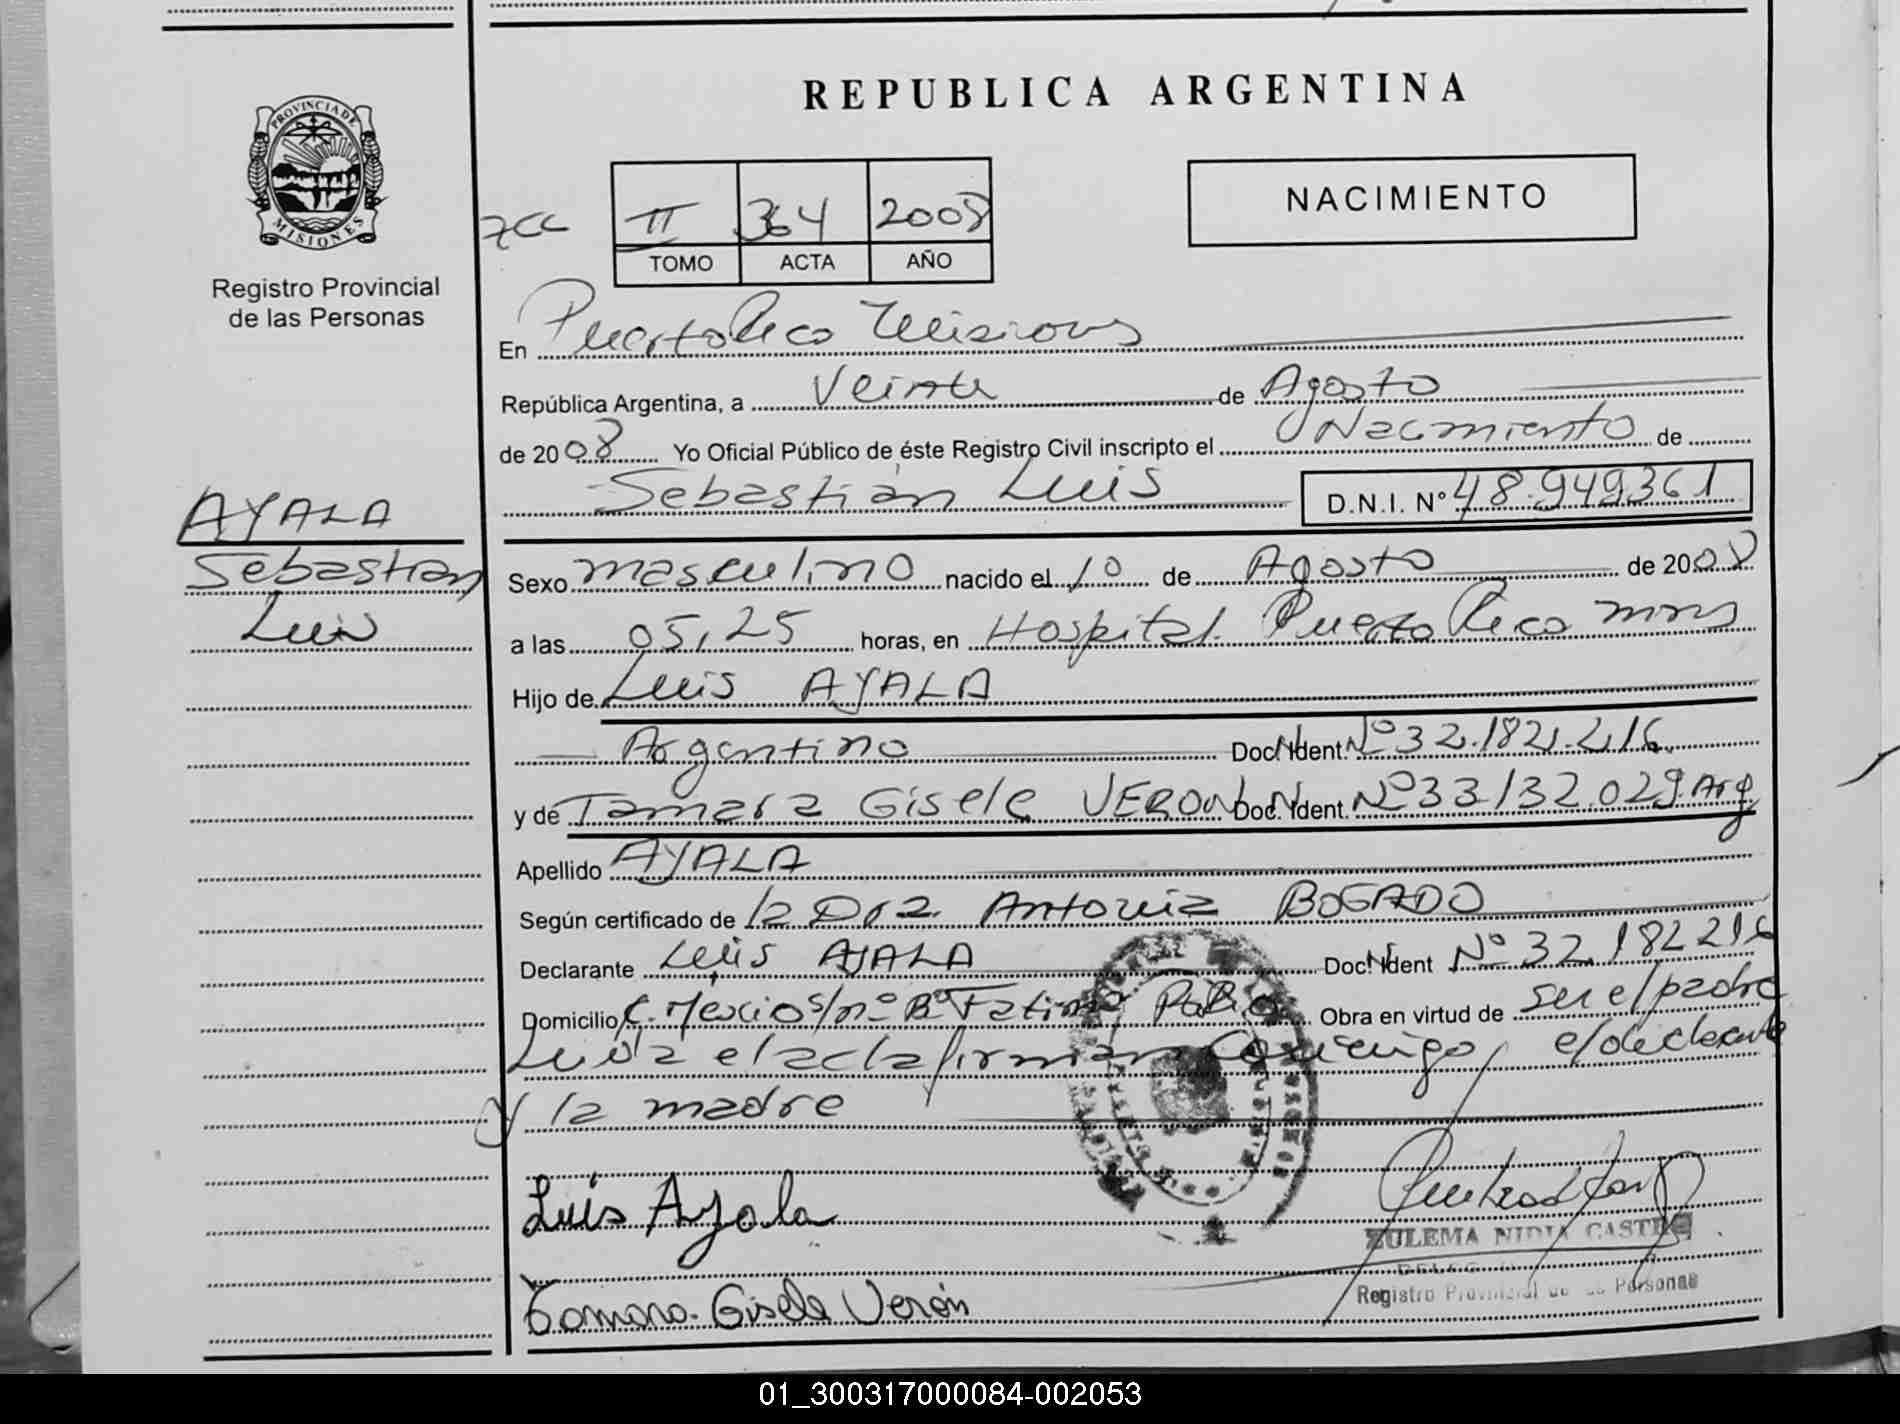 REPUBLICA ARGENTINA
PROVINCIA DE MISIONES
Registro Provincial
de las Personas
II 364 2008
TOMO ACTA AÑO
NACIMIENTO
En Puerto Rico Misiones
República Argentina, a Veinte de Agosto
de 2008 Yo Oficial Público de éste Registro Civil inscripto el Nacimiento de
Sebastián Luis D.N.I. Nº 48.949.361
AYALA
Sebastian
Luis
Sexo masculino nacido el 10 de Agosto de 2008
a las 05,25 horas, en Hospital Puerto Rico mnes
Hijo de Luis AYALA
Argentino Doc. Ident. Nº 32.182.216
y de Tamara Gisele VERON Doc. Ident. Nº 33132.029 Arg
Apellido AYALA
Según certificado de la Dra. Antonia BOGADO
Declarante Luis AYALA Doc. Ident Nº 32.182216
Domicilio C. Mexico s/nº Bº Fatima Pto Rico Obra en virtud de ser el padre
Leída el acta firman conmigo, el declarante
y la madre
Luis Ayala
ZULEMA NIDIA CASTRO
Registro Provincial de las Personas
Tamara Gisele Verón
01_300317000084-002053